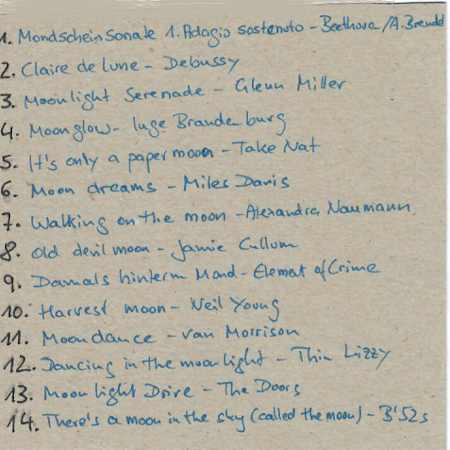 1. Mondschein Sonate 1. Adagio sostenuto - Beethoven/A. Brendel
2. Claire de lune - Debussy
3. Moonlight Serenade - Glenn Miller
4. Moonglow - Inge Brandenburg
5. It's only a paper moon - Take Nat
6. Moon dreams - Miles Davis
7. Walking on the moon - Alexandra Naumann
8. Old devil moon - Jamie Cullum
9. Damals hinterm Mond - Element of Crime
10. Harvest moon - Neil Young
11. Moondance - Van Morrison
12. Dancing in the moonlight - Thin Lizzy
13. Moonlight Drive - The Doors
14. There's a moon in the sky (called the moon) - B'52s